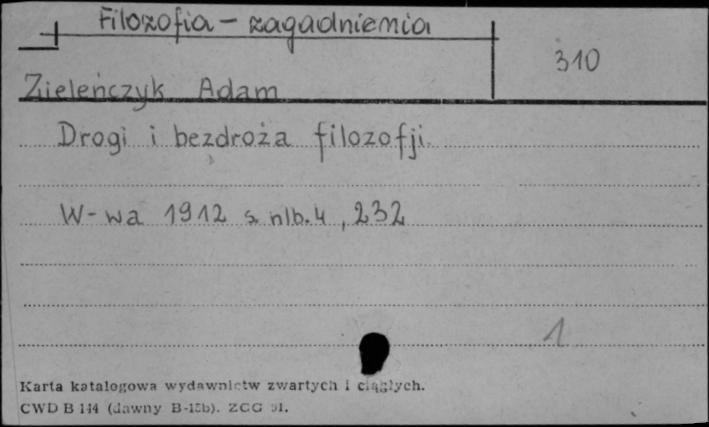 Filozofia - zagadnienia
310
Zieleńczyk Adam
Drogi i bezdroża filozofji.
W-wa 1912 s. nlb. 4, 232
1
Karta katalogowa wydawnictw zwartych i ciągłych.
CWD B 144 (dawny B-15b). ZCG